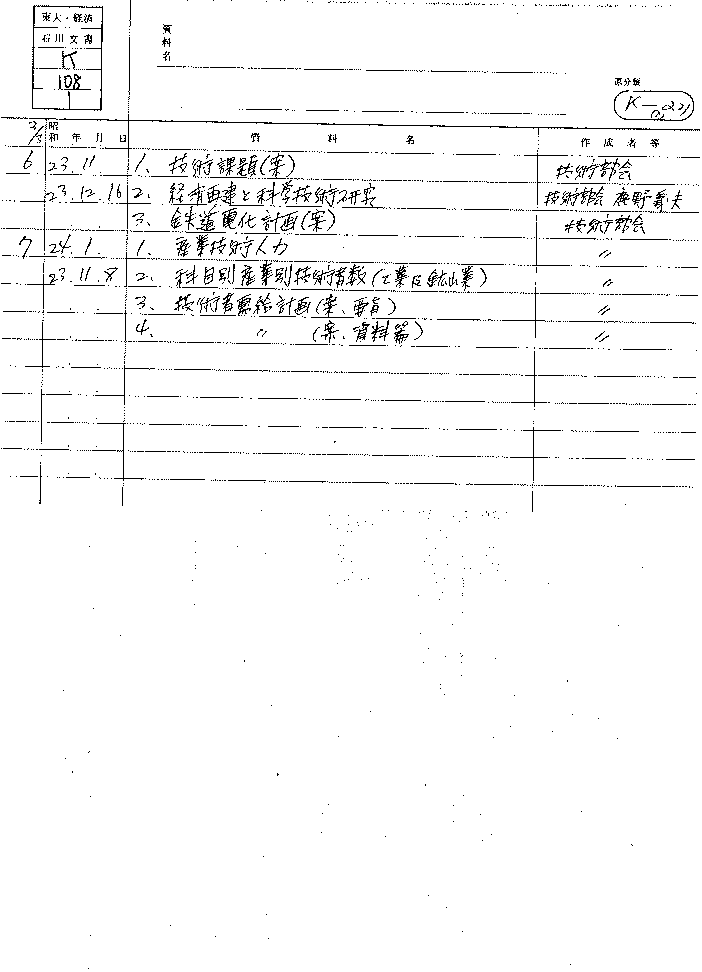 東大・経済
石川文書
K
108
資料名
原分類
K-
昭和 年 月 日 資料名 作成者等
6 23. 11 1. 技術課題(案) 技術部会
23. 12. 16 2. 経済再建と科学技術研究 技術部会 夫
3. 鉄道電化計画(案) 技術部会
7 24. 1. 1. 産業技術人力 〃
23. 11. 8 2. 科目別産業別技術者数(工業及鉱山業) 〃
3. 技術者需給計画(案、要旨) 〃
4. 〃 (案、資料篇) 〃